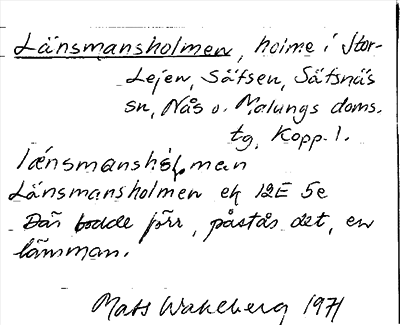 Länsmansholmen, holme i Stor-
Lejen, Säfsen, Säfsnäs
sn, Nås o. Malungs doms.
tg, Kopp. l.
länsmanshólman
Länsmansholmen ek 12E 5e
Där bodde förr, påstås det, en
länsman.
Mats Wahlberg 1971